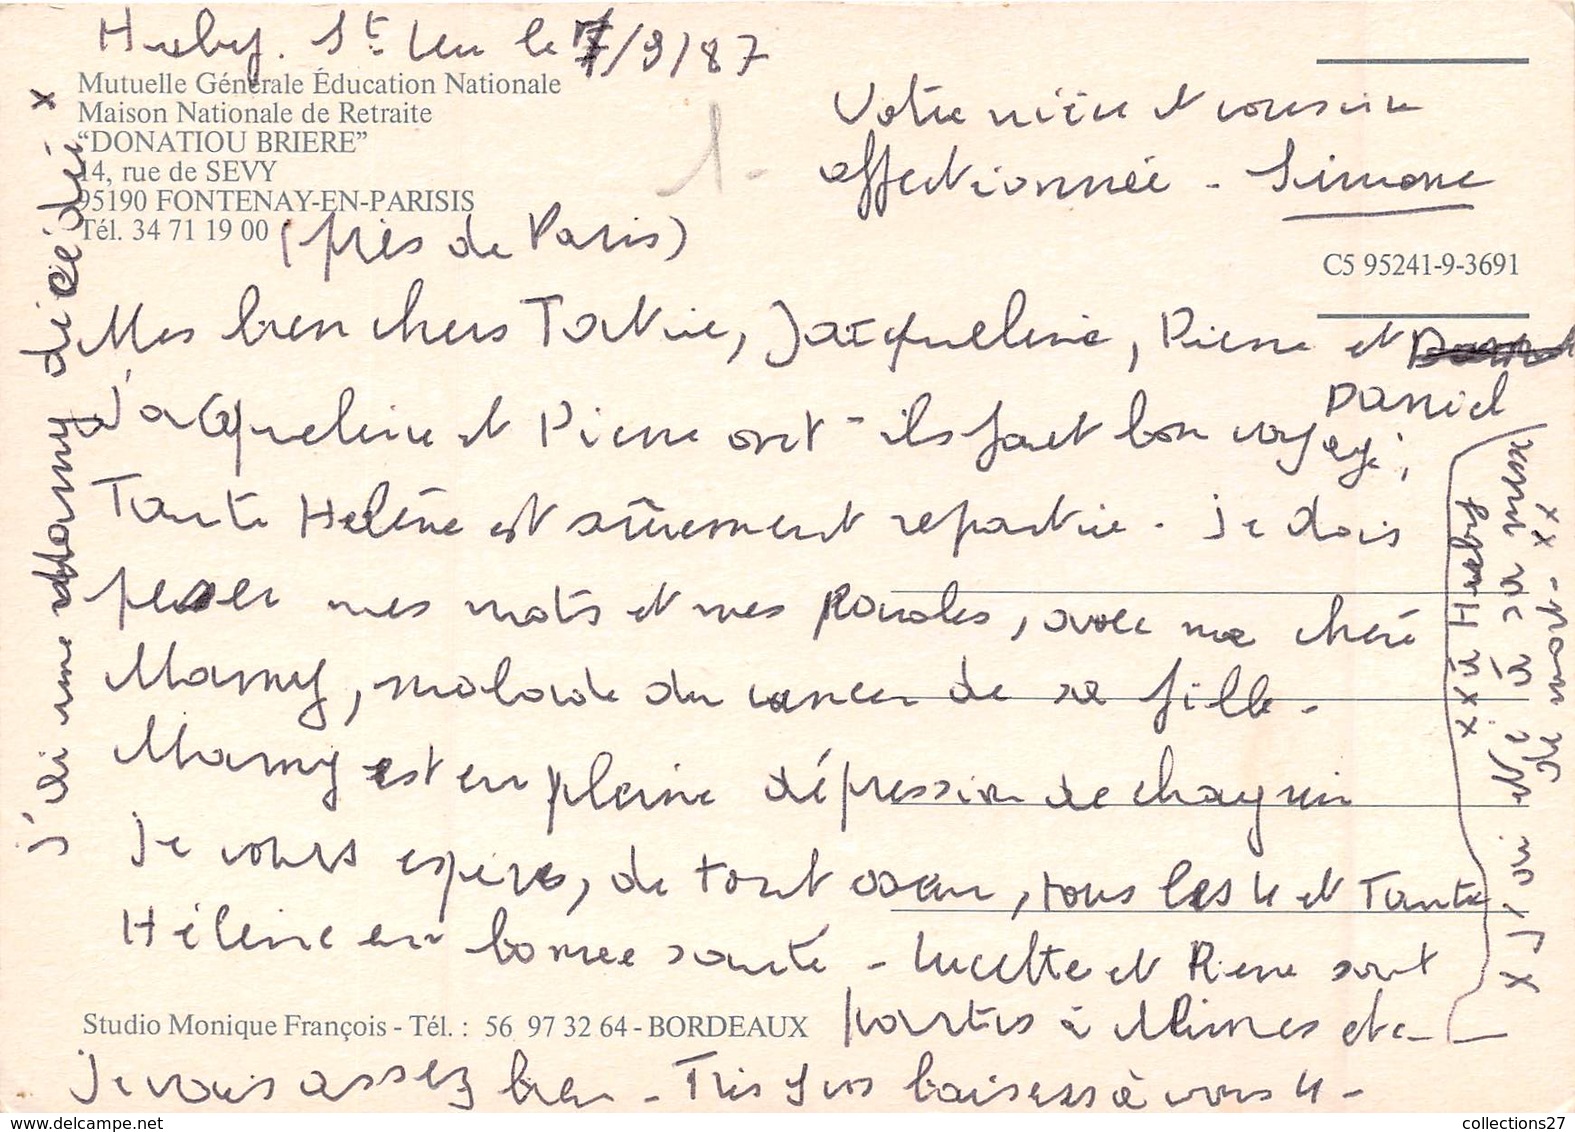 Huby. St Leu le 7/9/87
Mutuelle Générale Éducation Nationale
Maison Nationale de Retraite
“DONATIOU BRIERE”
14, rue de SEVY
95190 FONTENAY-EN-PARISIS
Tél. 34 71 19 00 (près de Paris)
1-
Votre nièce et cousine
affectionnée - Simone
C5 95241-9-3691
Mes bien chers Tantine, Jacqueline, Pierre et
Daniel
Jacqueline et Pierre ont-ils fait bon voyage,
Tante Helène est sûrement repartie. Je dois
peser mes mots et mes paroles, avec ma chère
Mamy, malade du cancer de sa fille.
Mamy est en pleine dépression de chagrin
Je vous espère, de tout coeur, tous les 4 et Tante
Hélène en bonne santé - Lucette et Pierre sont
partis à Nîmes etc -
Je vais assez bien. Très gros baisers à vous 4 -
Studio Monique François - Tél. : 56 97 32 64 - BORDEAUX
J'ai une Mamy décédée x
xx à Huby
x J'ai été à sa messe
de mort - xx
collections27